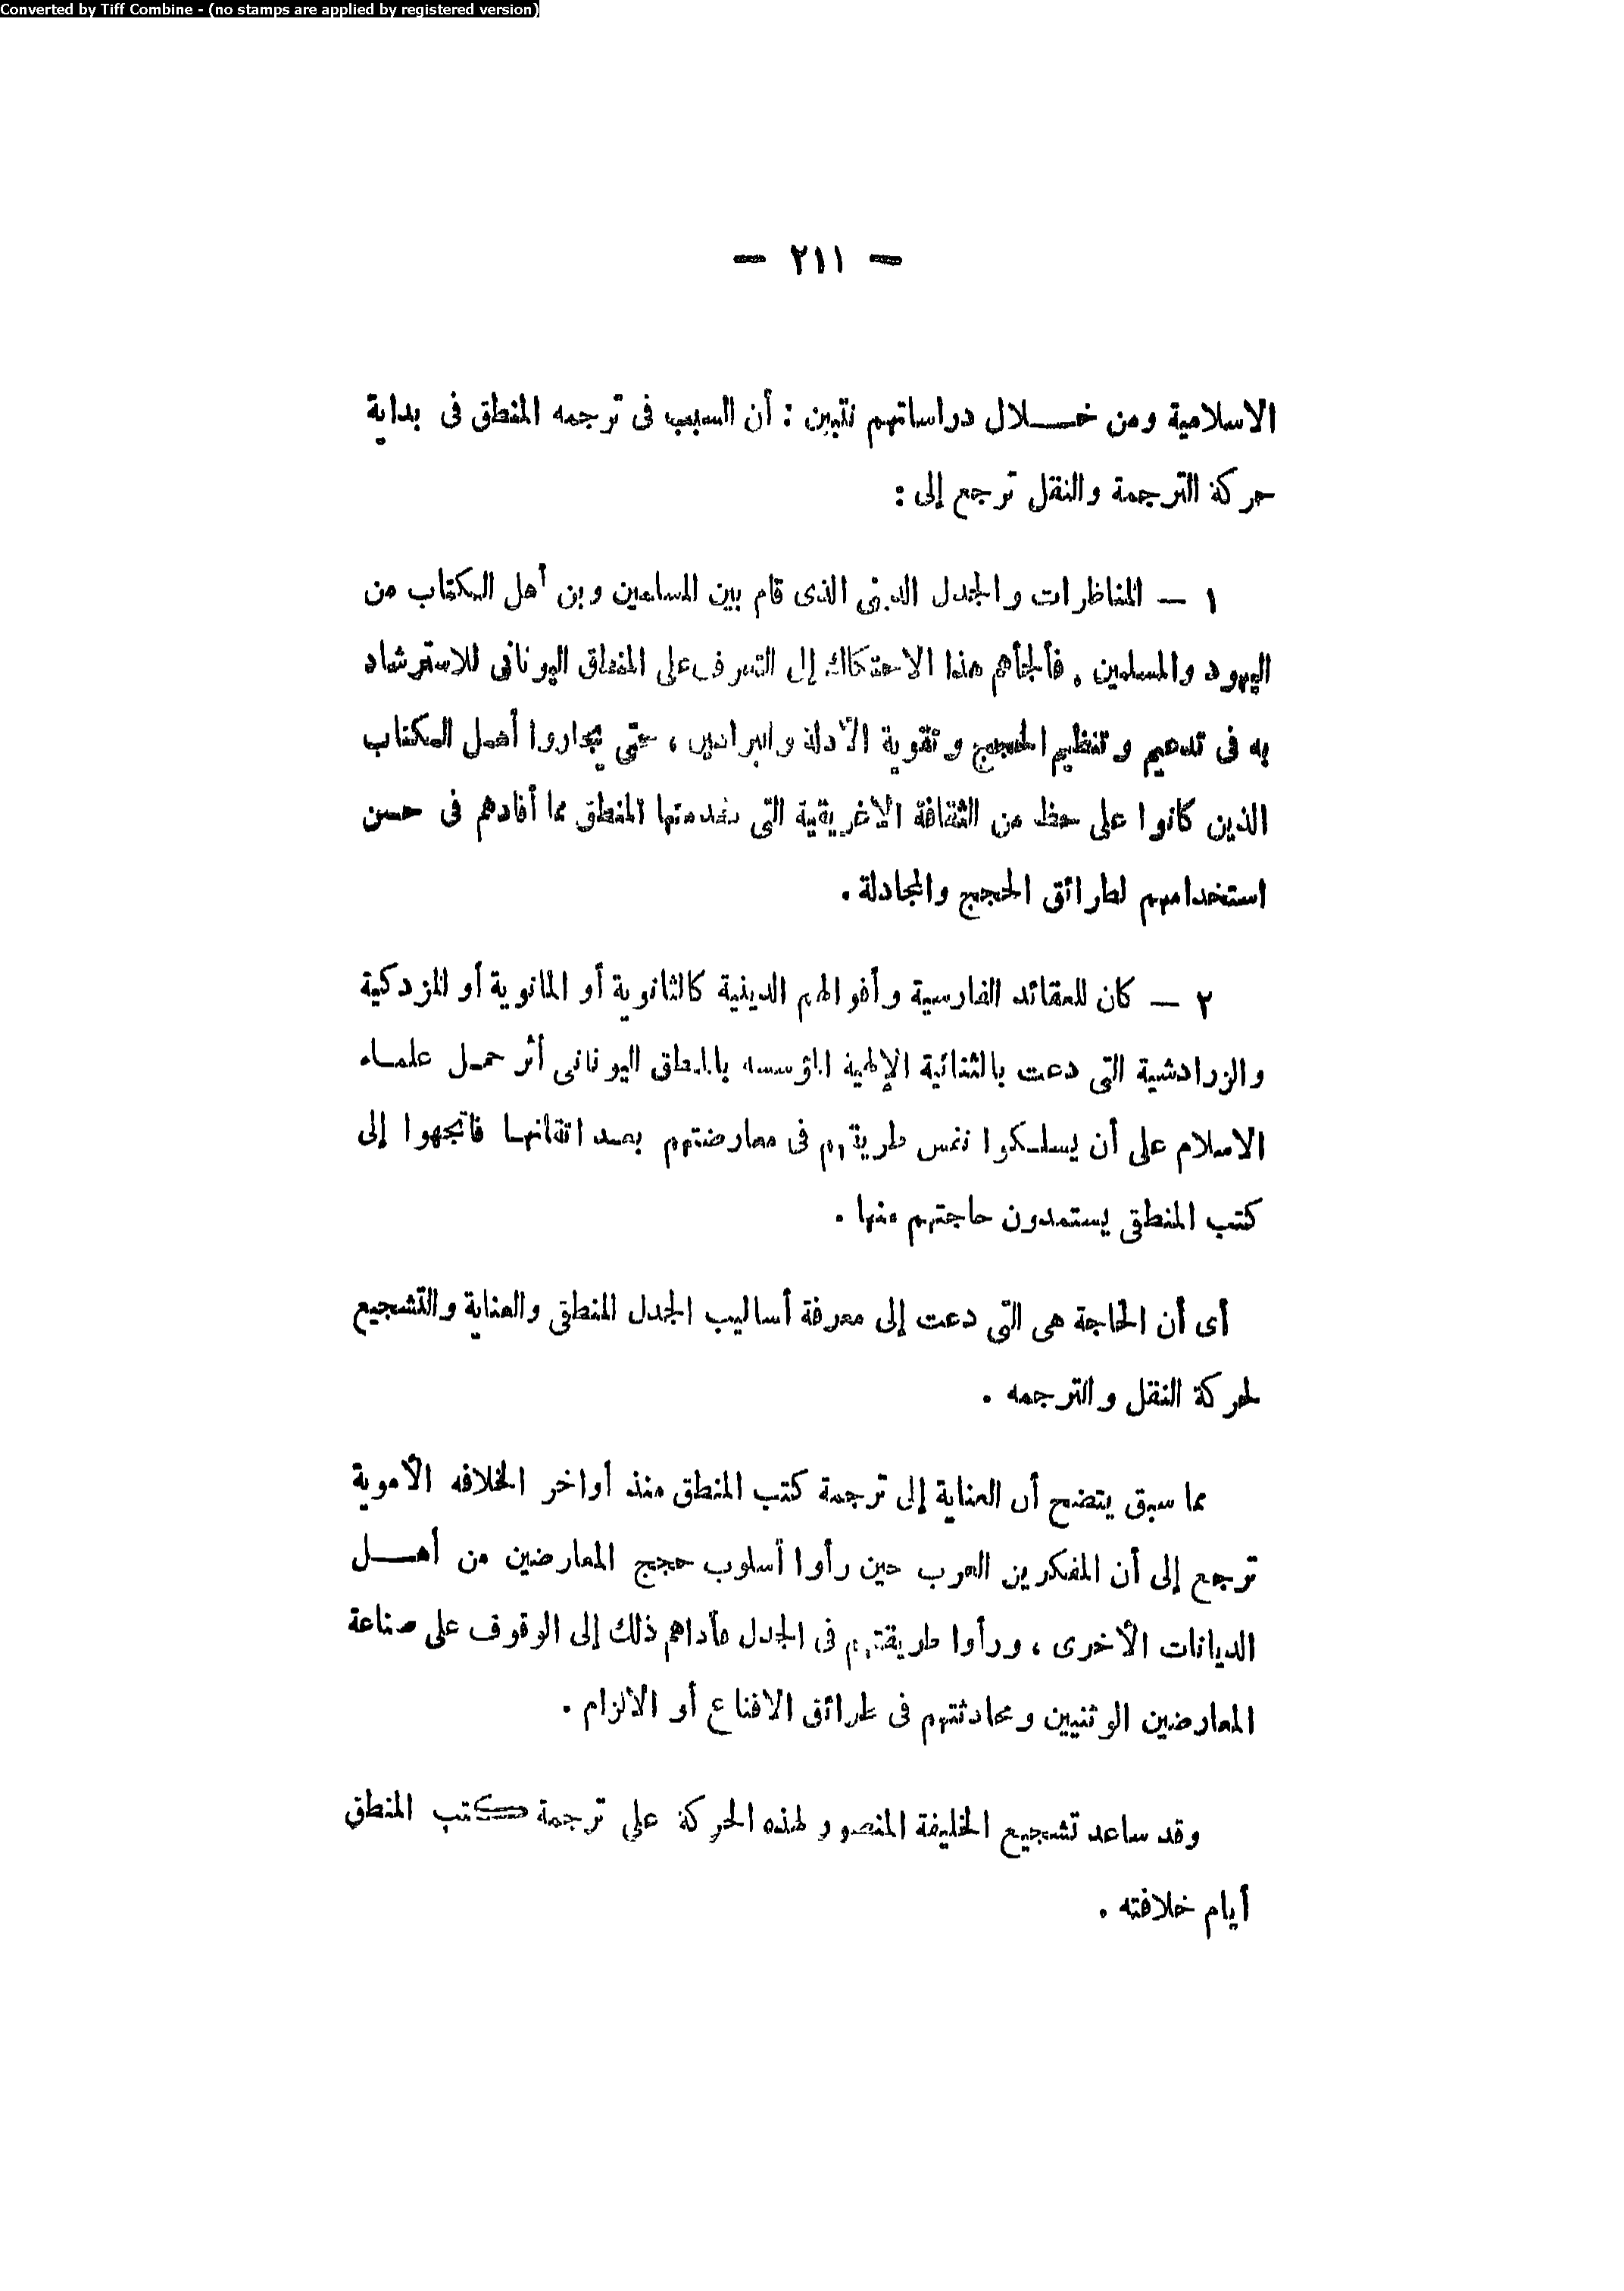 Converted by Tiff Combine - (no stamps are applied by registered version)
— ٢١١ —
الاسلامية ومن خلال دراساتهم نتبين : أن السبب فى ترجمه المنطق فى بداية
حركة الترجمة والنقل ترجع إلى :
١ — المناظرات والجدل الدينى الذى قام بين المسلمين وبن أهل الكتاب من
اليهود والمسلمين . فألجأهم هذا الاحتكاك إلى التعرف على المنطق اليونانى للاسترشاد
به فى تدعيم وتنظيم الحجج وتقوية الأدلة والبراهين ، حتى يجاروا أهل الكتاب
الذين كانوا على حظ من الثقافة الاغريقية التى المنطق مما أفادهم فى حسن
استخدامهم لطرائق الحجج والمجادلة .
٢ — كان للعقائد الفارسية وأفوالهم الدينية كالثانوية أو المانوية أو المزدكية
والزرادشية التى دعت بالثنائية الإلهية المؤسسه بالمنطق اليونانى أثر حمل علماء
الاسلام على أن يسلكوا نفس طريقهم فى معارضتهم بعد اتقانها فاتجهوا إلى
كتب المنطق يستمدون حاجتهم منها .
أى أن الحاجة هى التى دعت إلى معرفة أساليب الجدل المنطقى والعناية والتشجيع
لحركة النقل والترجمه .
مما سبق يتضح أن العناية إلى ترجمة كتب المنطق منذ أواخر الخلافه الأموية
ترجع إلى أن المفكرين العرب حين رأوا أسلوب حجج المعارضين من أهل
الديانات الأخرى ، ورأوا طريقتهم فى الجدل فأداهم ذلك إلى الوقوف على صناعة
المعارضين الوثنيين ومحادثتهم فى طرائق الافناع أو الالزام .
وقد ساعد تشجيع الخليفة المنصور لهذه الحركة على ترجمة كتب المنطق
أيام خلافته .